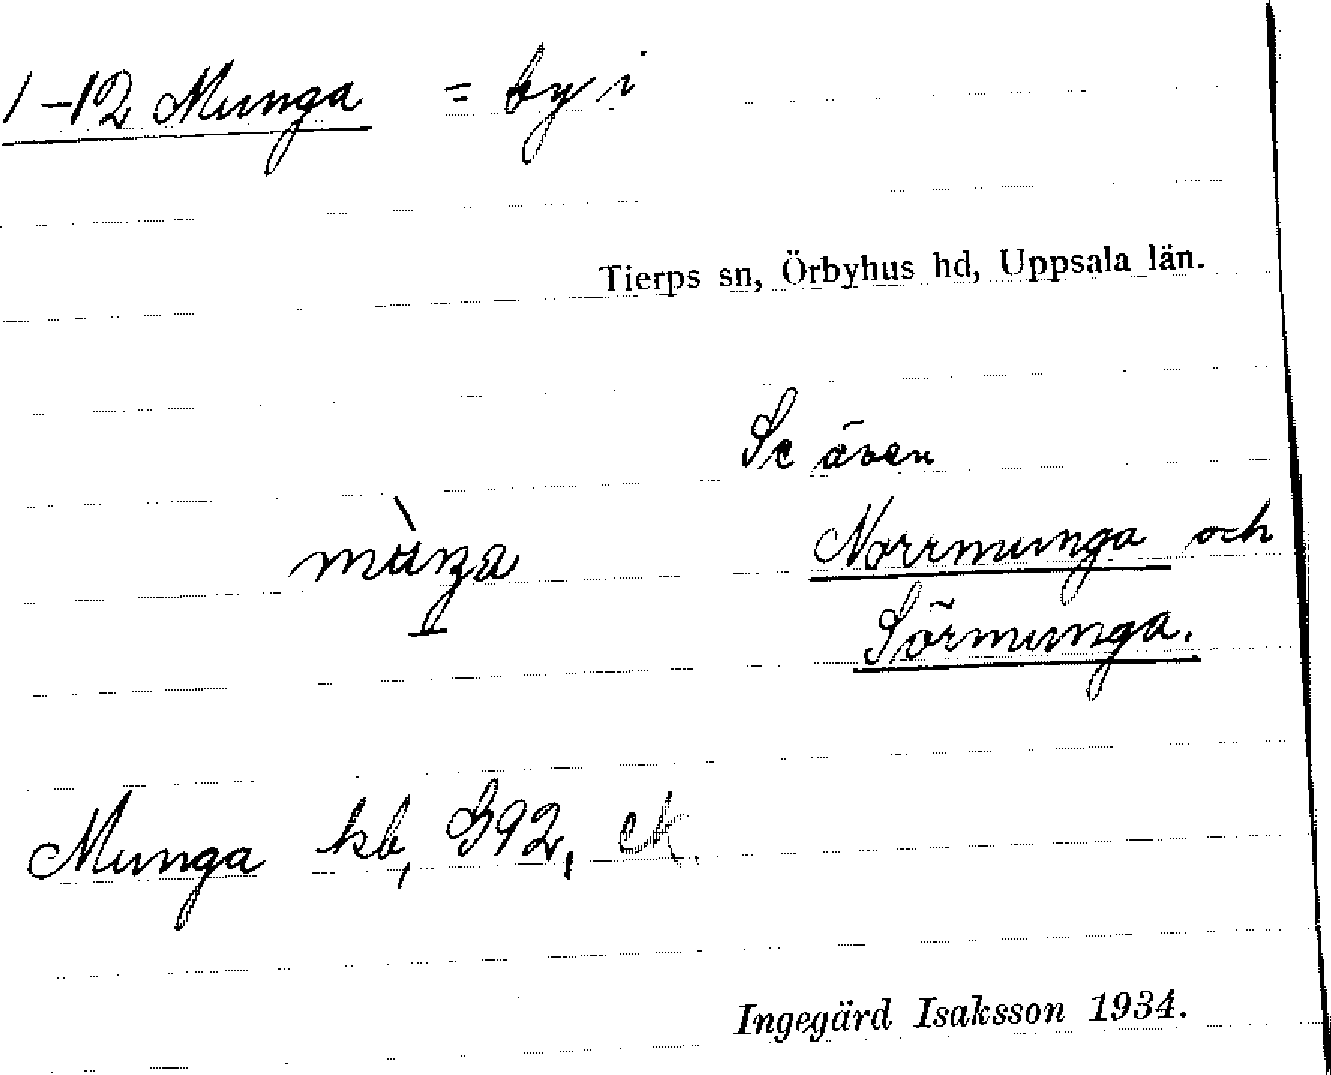 1-12 Munga = by i
Tierps sn, Örbyhus hd, Uppsala län.
Se även
mùŋa Norrmunga och
Sörmunga.
Munga kb, G92, ck.
Ingegärd Isaksson 1934.